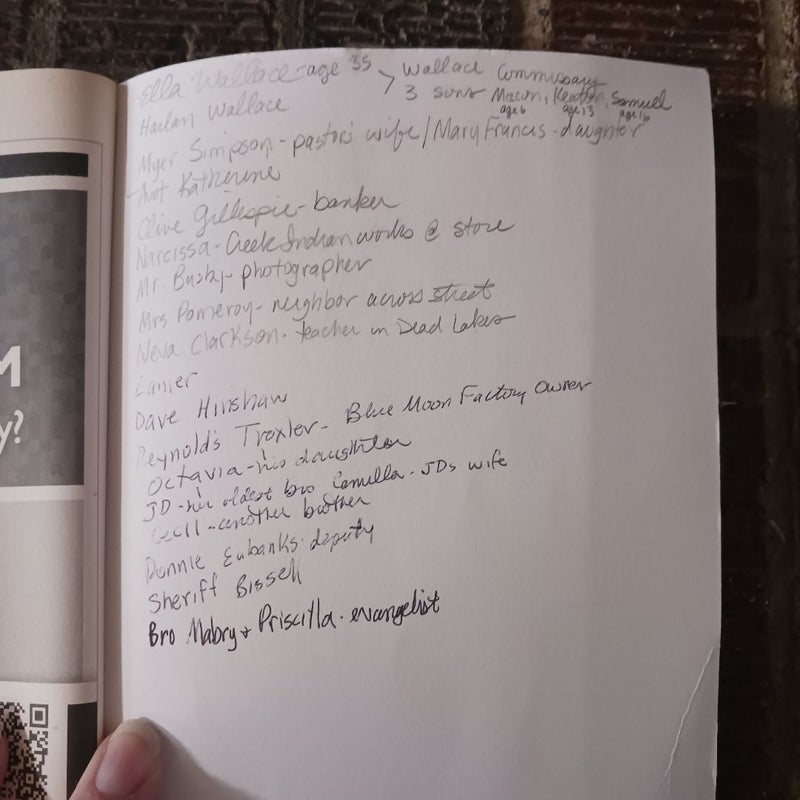 M
y?
Ella Wallace - age 35 > Wallace Commissary
3 sons Macon, Keaton, Samuel
age 6 age 13 age 16
Harlan Wallace
Myer Simpson - pastor's wife / Mary Francis - daughter
Aunt Katherine
Clive Gillespie - banker
Narcissa - Creek Indian works @ store
Mr. Busby - photographer
Mrs Pomeroy - neighbor across street
Neva Clarkson - teacher in Dead Lakes
Lanier
Dave Hinshaw
Reynolds Troxler - Blue Moon Factory Owner
Octavia - his daughter
JD - her oldest bro Camilla - JDs wife
Cecil - another brother
Ronnie Eubanks - deputy
Sheriff Bissell
Bro Mabry + Priscilla - evangelist